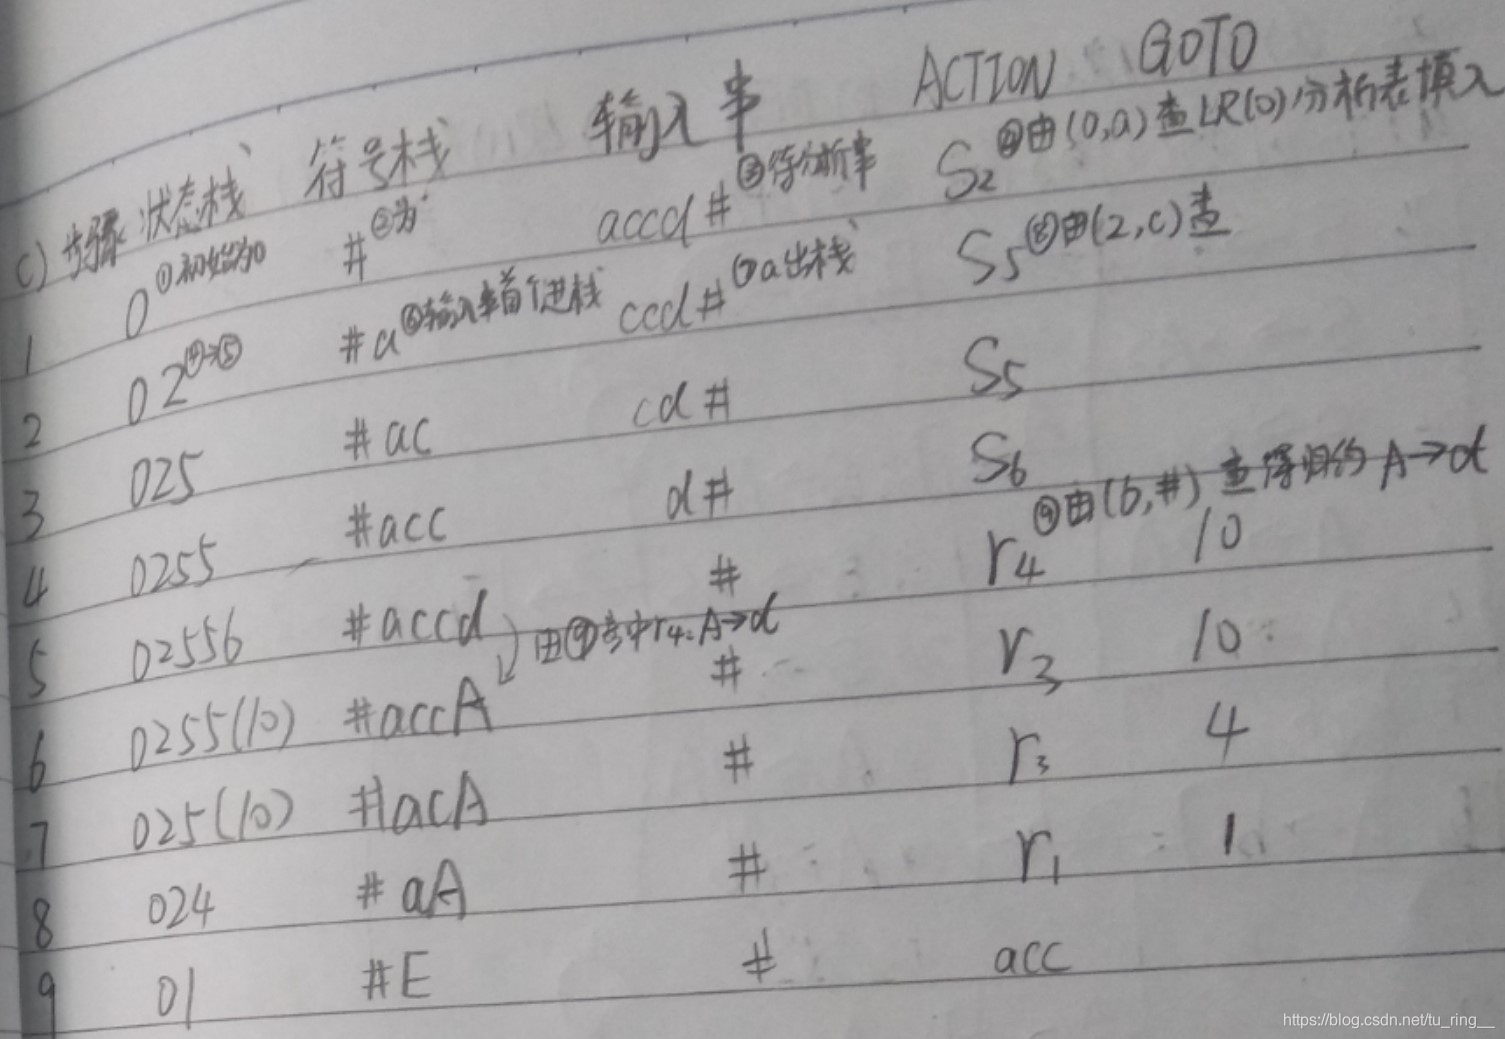 C) 步骤 状态栈 符号栈 输入串 ACTION GOTO
1 0 ①初始为0 # ②为 accd# ③待分析串 S2 ④由(0,a)查LR(0)分析表填入
2 02 ④→⑤ #a ⑥输入串首个进栈 ccd# ⑦a出栈 S5 ⑧由(2,c)查
3 025 #ac cd# S5
4 0255 #acc d# S6
5 02556 #accd # r4 ⑨由(6,#)查得归约A→d 10
由⑨步中r4:A→d
6 0255(10) #accA # r3 10
7 025(10) #acA # r3 4
8 024 #aA # r1 1
9 01 #E # acc
https://blog.csdn.net/tu_ring__